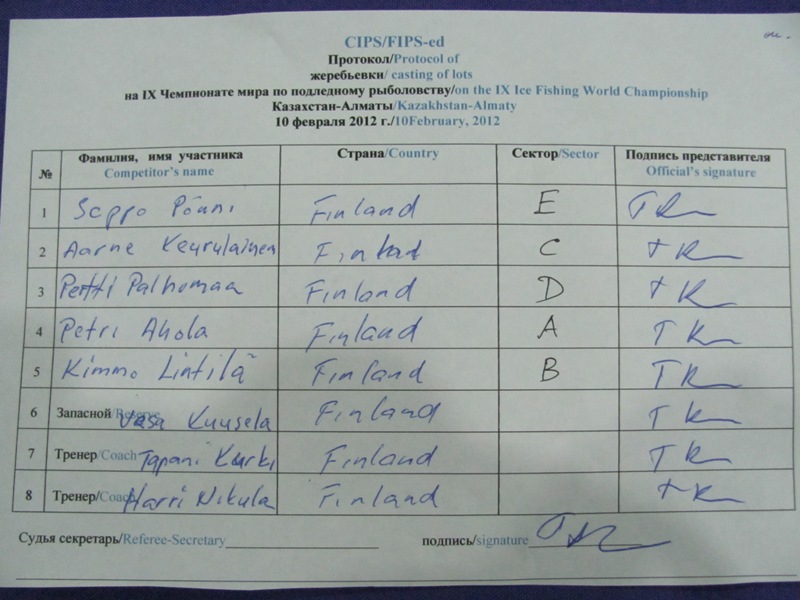 CIPS/FIPS-ed
Протокол/Protocol of
жеребьевки/ casting of lots
на IX Чемпионате мира по подледному рыболовству/on the IX Ice Fishing World Championship
Казахстан-Алматы/Kazakhstan-Almaty
10 февраля 2012 г./10February, 2012
№ Фамилия, имя участника Страна/Country Сектор/Sector Подпись представителя
Competitor's name Official's signature
1 Seppo Pönni Finland E TK
2 Aarne Keurulainen Finland C TK
3 Pertti Palhomaa Finland D TK
4 Petri Ahola Finland A TK
5 Kimmo Lintilä Finland B TK
6 Запасной/Reserve Vesa Kuusela Finland TK
7 Тренер/Coach Tapani Kurki Finland TK
8 Тренер/Coach Harri Nikula Finland TK
Судья секретарь/Referee-Secretary подпись/signature TK